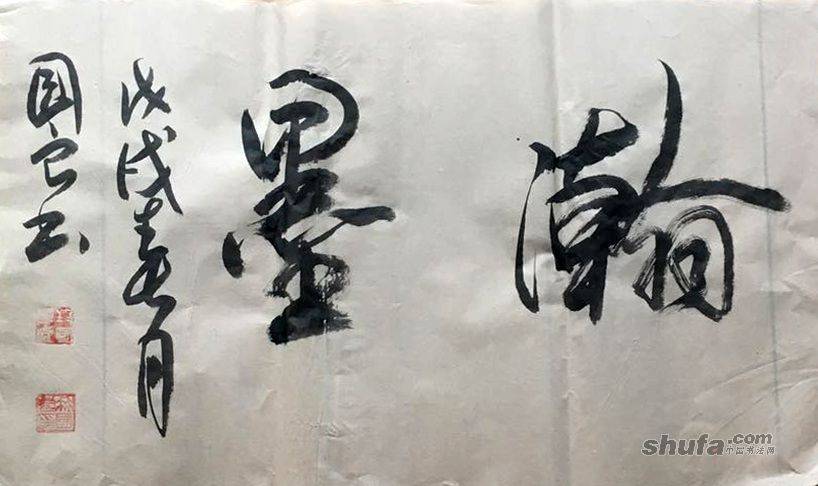 瀚墨
戊戌春月
国安书
shufa.com
中国书法网